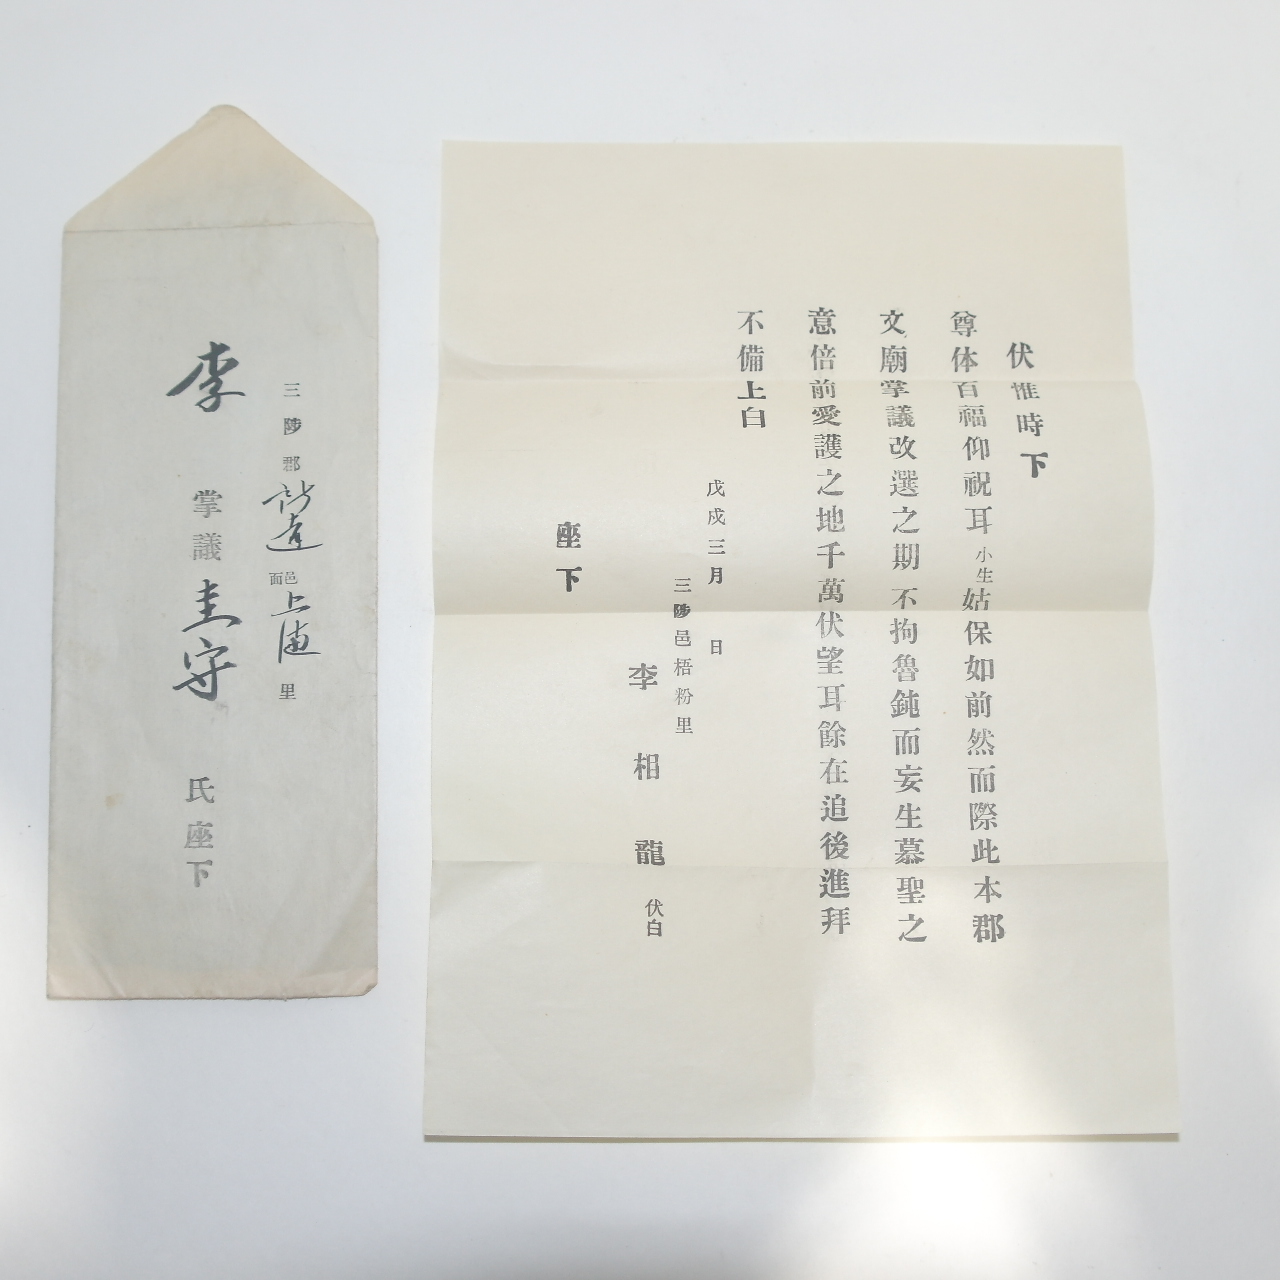 伏惟時下
尊体百福仰祝耳小生姑保如前然而際此本郡
文廟掌議改選之期不拘魯鈍而妄生慕聖之
意倍前愛護之地千萬伏望耳餘在追後進拜
不備上白
戊戌三月 日
三陟邑梧粉里
李相龍 伏白
座下
三陟郡 遠邑面 上 里
李 掌議 圭守 氏座下